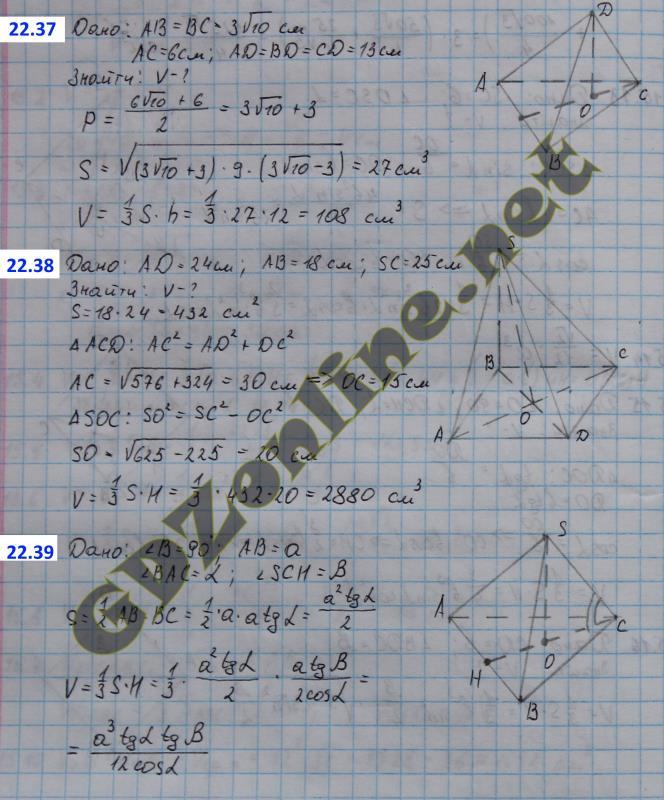 22.37 Дано: AB = BC = 3√10 см
AC = 6см; AD = BD = CD = 13см
Знайти: V - ?
P = (6√10 + 6)/2 = 3√10 + 3
S = √((3√10 + 3) · 9 · (3√10 - 3)) = 27 см³
V = 1/3 S · h = 1/3 · 27 · 12 = 108 см³
D
A
O
C
B
22.38 Дано: AD = 24см; AB = 18см; SC = 25см
Знайти: V - ?
S = 18 · 24 = 432 см²
ΔACD: AC² = AD² + DC²
AC = √(576 + 324) = 30 см => OC = 15см
ΔSOC: SO² = SC² - OC²
SO = √(625 - 225) = 20 см
V = 1/3 S · H = 1/3 · 432 · 20 = 2880 см³
S
B
C
O
A
D
22.39 Дано: ∠B = 90°; AB = a
∠BAC = α; ∠SCH = β
S = 1/2 AB · BC = 1/2 · a · a tgα = (a² tgα)/2
V = 1/3 S · H = 1/3 · (a² tgα)/2 · (a tgβ)/(2cosα) =
= (a³ tgα tgβ)/(12 cosα)
S
A
C
O
H
B
GDZonline.net